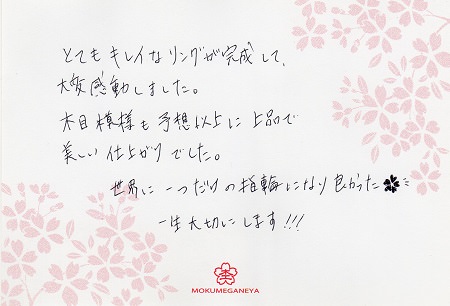 とてもキレイなリングが完成して、
大変感動しました。
木目模様も予想以上に上品で
美しい仕上がりでした。
世界に一つだけの指輪になり良かった
一生大切にします!!!
MOKUMEGANEYA